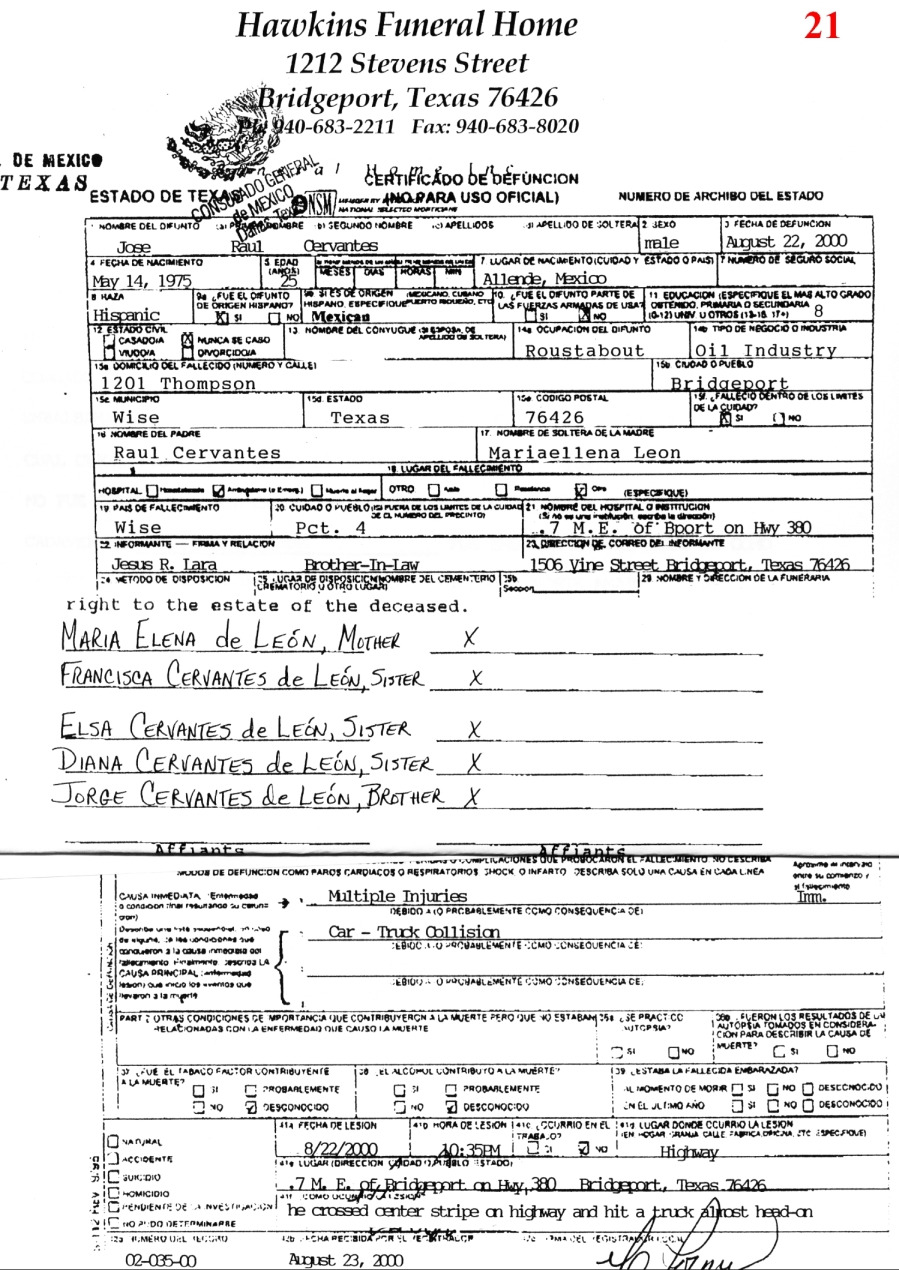 Hawkins Funeral Home
21
1212 Stevens Street
Bridgeport, Texas 76426
Ph: 940-683-2211 Fax: 940-683-8020
DE MEXICO
TEXAS
CONSULADO GENERAL
de MEXICO
Dallas, Tex
NSM
NATIONAL SELECTED MORTICIANS
CERTIFICADO DE DEFUNCION
ESTADO DE TEXAS (NO PARA USO OFICIAL) NUMERO DE ARCHIBO DEL ESTADO
NOMBRE DEL DIFUNTO NOMBRE b) SEGUNDO NOMBRE c) APELLIDOS d) APELLIDO DE SOLTERA 2 SEXO 3 FECHA DE DEFUNCION
Jose Raul Cervantes male August 22, 2000
4 FECHA DE NACIMIENTO 5 EDAD (AÑOS) MESES DIAS HORAS MIN 7 LUGAR DE NACIMIENTO (CUIDAD Y ESTADO O PAIS) NUMERO DE SEGURO SOCIAL
May 14, 1975 25 Allende, Mexico
8 RAZA 9a ¿FUE EL DIFUNTO DE ORIGEN HISPANO? 9b SI ES DE ORIGEN HISPANO, ESPECIFIQUE (MEXICANO, CUBANO PUERTO RIQUEÑO, ETC 10. ¿FUE EL DIFUNTO PARTE DE LAS FUERZAS ARMADAS DE USA? 11 EDUCACION (ESPECIFIQUE EL MAS ALTO GRADO OBTENIDO, PRIMARIA O SECUNDARIA (0-12) UNIV U OTROS (13-16, 17+)
Hispanic X SI NO Mexican SI X NO 8
12 ESTADO CIVIL 13 NOMBRE DEL CONYUGUE (SI ESPOSA, DE APELLIDO DE SOLTERA) 14a OCUPACION DEL DIFUNTO 14b TIPO DE NEGOCIO O INDUSTRIA
CASADO/A X NUNCA SE CASO
VIUDO/A DIVORCIDO/A Roustabout Oil Industry
15a DOMICILIO DEL FALLECIDO (NUMERO Y CALLE) 15b CIUDAD O PUEBLO
1201 Thompson Bridgeport
15c MUNICIPIO 15d. ESTADO 15e CODIGO POSTAL 15f. ¿FALLECIO DENTRO DE LOS LIMITES DE LA CUIDAD?
Wise Texas 76426 X SI NO
16 NOMBRE DEL PADRE 17. NOMBRE DE SOLTERA DE LA MADRE
Raul Cervantes Mariaellena Leon
18 LUGAR DEL FALLECIMIENTO
HOSPITAL OTRO Residencia Otro (ESPECIFIQUE)
19 PAIS DE FALLECIMIENTO 20 CUIDAD O PUEBLO (SI FUERA DE LOS LIMITES DE LA CUIDAD DE EL NUMERO DEL PRECINTO) 21 NOMBRE DEL HOSPITAL O INSTITUCION (Si no es una institución, escriba la dirección)
Wise Pct. 4 .7 M.E. of Bport on Hwy 380
22 INFORMANTE — FIRMA Y RELACION 23 DIRECCION DE CORREO DEL INFORMANTE
Jesus R. Lara Brother-In-Law 1506 Vine Street Bridgeport, Texas 76426
24 METODO DE DISPOSICION 25 LUGAR DE DISPOSICION (NOMBRE DEL CEMENTERIO CREMATORIO U OTRO LUGAR) 25b Seccion 29 NOMBRE Y DIRECCION DE LA FUNERARIA
right to the estate of the deceased.
MARIA ELENA de LEÓN, MOTHER X
FRANCISCA CERVANTES de LEÓN, SISTER X
ELSA CERVANTES de LEÓN, SISTER X
DIANA CERVANTES de LEÓN, SISTER X
JORGE CERVANTES de LEÓN, BROTHER X
Affiants Affiants
O COMPLICACIONES QUE PROVOCARON EL FALLECIMIENTO. NO DESCRIBA
MODOS DE DEFUNCION COMO PAROS CARDIACOS O RESPIRATORIOS SHOCK, O INFARTO DESCRIBA SOLO UNA CAUSA EN CADA LINEA
entre su comienzo y el fallecimiento
CAUSA INMEDIATA (Enfermedad o condicion final resultando Multiple Injuries Imm.
DEBIDO A (O PROBABLEMENTE COMO CONSEQUENCIA DE)
Car - Truck Collision
DEBIDO A (O PROBABLEMENTE COMO CONSEQUENCIA DE:
CAUSA PRINCIPAL (enfermedad lesion) que inicio los eventos que llevaron a la muerte
DEBIDO A (O PROBABLEMENTE COMO CONSEQUENCIA DE:
PART 2 OTRAS CONDICIONES DE IMPORTANCIA QUE CONTRIBUYERON A LA MUERTE PERO QUE NO ESTABAN RELACIONADAS CON LA ENFERMEDAD QUE CAUSO LA MUERTE
¿SE PRACTICO AUTOPSIA? SI NO
¿FUERON LOS RESULTADOS DE UN AUTOPSIA TOMADOS EN CONSIDERACION PARA DESCRIBIR LA CAUSA DE MUERTE? SI NO
37 ¿FUE EL TABACO FACTOR CONTRIBUYENTE A LA MUERTE? 38 ¿EL ALCOHOL CONTRIBUYO A LA MUERTE? 39 ¿ESTABA LA FALLECIDA EMBARAZADA?
SI PROBABLEMENTE SI PROBABLEMENTE AL MOMENTO DE MORIR SI NO DESCONOCIDO
NO DESCONOCIDO NO DESCONOCIDO EN EL ULTIMO AÑO SI NO DESCONOCIDO
41a FECHA DE LESION 41b HORA DE LESION 41c ¿OCURRIO EN EL TRABAJO? 41d LUGAR DONDE OCURRIO LA LESION (EN HOGAR GRANJA CALLE FABRICA OFICINA, ETC ESPECIFIQUE)
NATURAL
8/22/2000 10:35PM SI NO Highway
ACCIDENTE
41e LUGAR (DIRECCION CIUDAD O PUEBLO ESTADO)
SUICIDIO
.7 M. E. of Bridgeport on Hwy, 380 Bridgeport, Texas 76426
HOMICIDIO
41f COMO OCURRIO LA LESION
PENDIENTE DE LA INVESTIGACION
he crossed center stripe on highway and hit a truck almost head-on
NO PUDO DETERMINARSE
42a NUMERO DEL REGISTRO 42b FECHA RECIBIDA POR EL REGISTRADOR 42c FIRMA DEL REGISTRADOR LOCAL
02-035-00 August 23, 2000